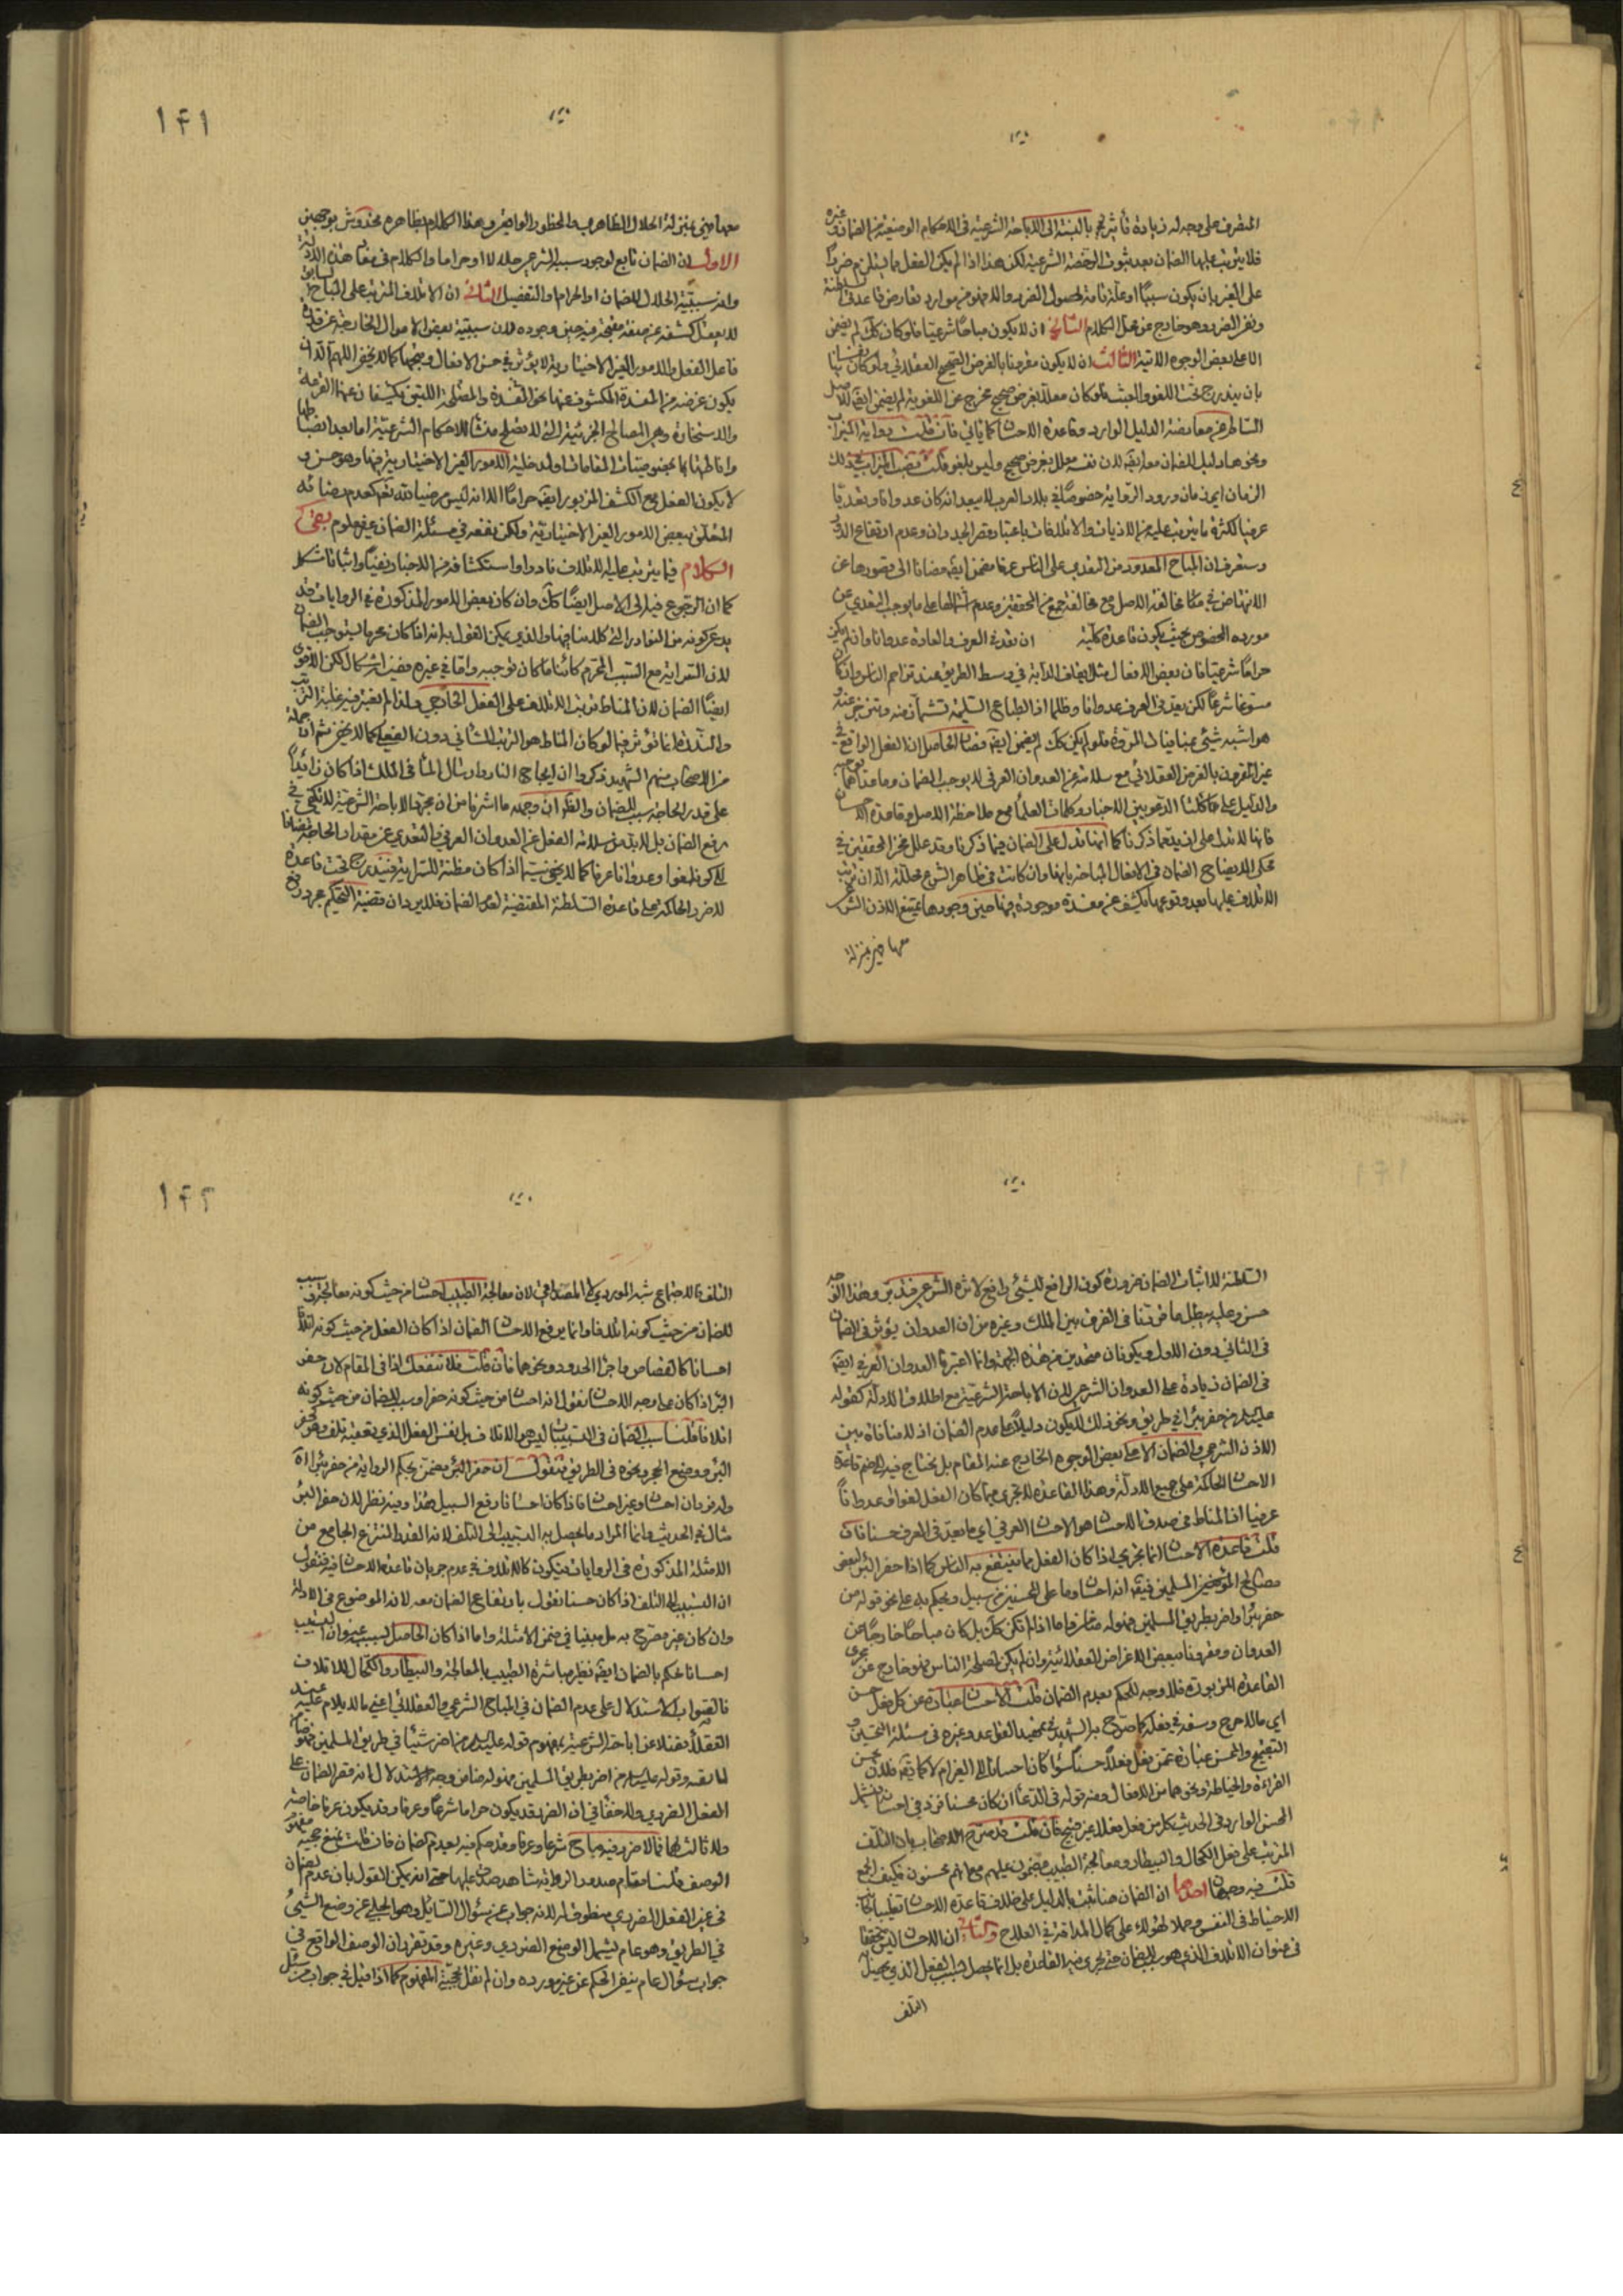 المتصرف على وجه له زيادة تأثير بالنسبة الى الاباحة الشرعية في الاحكام الوضعية من الضمان وغيره
فلا يترتب عليها الضمان بعد ثبوت الرخصة الشرعية لكن هذا اذا لم يكن الفعل مما يستلزم ضررا
على الغير بان يكون سببا او علة تامة لحصول الضرر والا فهو من موارد تعارض قاعدتي السلطنة
ونفي الضرر وهو خارج عن محل الكلام الثاني ان لا يكون مباحا شرعيا فلو كان كك لم يضمن
الا على بعض الوجوه الاتية الثالث ان لا يكون مقرونا بالغرض الصحيح العقلائي ولو كان
بان يندرج تحت اللغو والعبث فلو كان معللا بغرض صحيح مخرج عن اللغوية لم يضمن ايضا للاصل
السالم عن معارضة الدليل الوارد وقاعدة الاحسان كما يأتي فان قلت رواية الميزاب
ونحوها دليل الضمان مع انه لان نفسه معلل بغرض صحيح وليس بلغو قلت نصب الميزاب في ذلك
الزمان اي زمان ورود الرواية خصوصا في بلاد العرب لا يبعد انه كان عدوانا وتعديا
عرفيا لكثرة ما يترتب عليه من الاذيات والاتلافات باعتبار قصر الجدران وعدم ارتفاع
وستعرف ان المباح المعدود من التعدي على الناس عرفا مضمن ايضا مضافا الى قصورها عن
الانتهاض في مخالفة الاصل مع مخالفة جمع من المحققين وعدم اشتمالها على ما يوجب التعدي عن
مورده المخصوص بحيث يكون قاعدة كلية ان تعد في العرف والعادة عدوانا وان لم يكن
حراما شرعيا فان بعض الافعال مثل ايقاف الدابة في وسط الطريق عند تزاحم الناس وان كان
مسوغا شرعا لكن يعد في العرف عدوانا وظلما اذ الطباع السليمة تشمأز منه
هو اشبه شيء بمنافيات المروة فلو لم يكن كك لم يضمن ايضا فصار الحاصل ان الفعل الواقع في
غير المقرون بالغرض العقلائي مع سلامته عن العدوان العرفي لا يوجب الضمان وما عداهما
والدليل على ذلك التدبر في الاخبار وكلمات العلماء مع ملاحظة الاصل وقاعدة الاحسان
فانها لا تدل على ازيد مما ذكرنا كما انها تدل على الضمان فيما ذكرنا وقد علل فخر المحققين في
محكى الايضاح الضمان في الافعال المباحة بانها وان كانت في ظاهر الشرع محللة الا ان ترتب
الاتلاف عليها بعد وقوعها يكشف عن مفسدة موجودة فيها حين وجودها يمتنع الاذن الشرعي
معها فهي بمنزلة
١٤١
معها فهي بمنزلة الحلال الظاهري والمحظور الواقعي وهذا الكلام بظاهره مخدوش بوجهين
الاول ان الضمان تابع لوجود سببه الشرعي حلالا او حراما والكلام في مقام هذه الدلالة
وانه سببية الحلال للضمان او الحرام والتفصيل الثاني ان الاتلاف المترتب على المباح
لا يعقل كشفه عن صفة مقبحة فيه حين وجوده لان سببية بعض الاموال الخارجة عن قدرة
فاعل الفعل والامور الغير الاختيارية لا يؤثر في حسن الافعال وقبحها كما لا يخفى اللهم الا ان
يكون غرضه من المفسدة المكشوف عنها نحو المفسدة والمصلحة اللتين تكشفان عنهما القرعة
والاستخارة وهي المصالح الجزئية التي لا تصلح منشأ للاحكام الشرعية
واناطتها بها بخصوصيات المقامات ولا دخلية الامور الغير الاختيارية فيها وهو حسن و
لا يكون الفعل مع الكشف المزبور ايضا حراما الا انه ليس مرضيا لله تعالى
المتعلق ببعض الامور الغير الاختيارية ولكن نفعه في مسئلة الضمان غير معلوم بقى
الكلام فيما يترتب عليه الاتلاف نادرا واستكشافه من الاخبار نفيا واثباتا مشكل
كما ان الرجوع فيه الى الاصل ايضا كك وان كان بعض الامور المذكورة في الروايات قد
يدعى كونه من النوادر التي كلامنا فيها والذي يمكن القول به انه اذا كان محرما يستوجب الضمان
لان السراية مع السبب المحرم كائنا ما كان توجبه واما في غيره ففيه اشكال لكن الاقوى
ايضا الضمان لان المناط ترتب الاتلاف على الفعل الخارجي ولذا لم يعتبر فيه غلبة الترتب
والندرة انما تؤثر فيما لو كان المناط هو الترتب الشأني دون الفعلي كما لا يخفى ثم ان جملة
من الاصحاب منهم الشهيد ذكروا ان ايجاج النار وارسال الماء في الملك اذا كان زائدا
على قدر الحاجة سبب للضمان والظاهر ان وجهه ما اشرنا من ان مجرد الاباحة الشرعية لا تكفي في
رفع الضمان بل لابد من سلامة الفعل عن العدوان العرفي والتعدي عن مقدار الحاجة مضافا
الى كونه لغوا وعدوانا عرفا كما لا يخفى سيما اذا كان مظنة للسراية فيندرج تحت قاعدة
لا ضرر الحاكمة على قاعدة السلطنة المقتضية لعدم الضمان فلا يرد ان قضية التحكيم مجرد رفع
السلطنة لا اثبات الضمان ضرورة كون الرافع للشيء رافع لاثره الشرعي فتدبر وهذا الوجه
حسن وعليه يبطل ما فرقنا في الفرق بين الملك وغيره من ان العدوان يؤثر في الضمان
في الثاني دون الاول ويكونان متحدين من هذه الجهة وانما اعتبرنا العدوان العرفي ايضا
في الضمان زيادة على العدوان الشرعي لان الاباحة الشرعية مع اطلاق الادلة كقوله
عليه السلام من حفر بئرا في طريق ونحو ذلك لا يكون دليلا على عدم الضمان اذ لا منافاة بين
الاذن الشرعي والضمان الا على بعض الوجوه الخارج عنه المقام بل نحتاج فيه الى ضم قاعدة
الاحسان الحاكمة على جميع الادلة وهذا القاعدة لا تجري فيما كان الفعل لغوا او عدوانا
عرفيا اذ المناط في صدق الاحسان هو الاحسان العرفي اي ما يعد في العرف حسنا فان
قلت قاعدة الاحسان انما تجري اذا كان الفعل مما ينتفع به الناس كما اذا حفر البئر لبعض
مصالح المؤمنين المسلمين فيقال انه احسان وما على المحسنين من سبيل ويحكم به على نحو قوله من
حفر بئرا واضر بطريق المسلمين فهو له ضامن واما اذا لم تكن كك بل كان مباحا خارجا عن
العدوان ومقرونا ببعض الاغراض العقلائية وان لم يكن لمصلحة الناس فهو خارج عن مجرى
القاعدة المزبورة فلا وجه للحكم بعدم الضمان قلت الاحسان عبارة عن كل فعل حسن
اي ما لا حرج وسفه في فعله كما صرح به الشهيد في تمهيد القواعد وغيره في مسئلة التحسين و
التقبيح والمحسن عبارة عمن يفعل فعلا حسنا سواء كان احسانا الى الغير ام لا كما يقال فلان يحسن
القراءة والخياطة ونحوهما من الافعال ومنه قوله في الدعاء ان كان محسنا فزد في احسانه فيشمل
المحسن الوارد في الحديث كل من فعل فعلا غير قبيح فان قلت قد صرح الاصحاب بان التلف
المترتب على فعل الكحال والبيطار ومعالجة الطبيب مضمون عليهم مع انهم محسنون فكيف الجمع
قلت فيه وجهان احدهما ان الضمان هنا ثبت بالدليل على خلاف قاعدة الاحسان تغليبا لجانب
الاحتياط في النفس وحملا لهؤلاء على كمال المداقة في العلاج والثاني ان الاحسان ليس متحققا
في عنوان الاتلاف الذي هو سبب للضمان حتى تجري فيه القاعدة بل انما يحصل بسبب الفعل الذي يحصل
التلف
١٤٢
التلف فالاجتماع شبه الموردي لا المصداقي لان معالجة الطبيب احسان من حيث كونه معالجة وسبب
للضمان من حيث كونه اتلافا وانما يرفع الاحسان الضمان اذا كان الفعل من حيث كونه اتلافا
احسانا كالقصاص واجراء الحدود ونحوهما فان قلت فلا تنفعك اذا في المقام لان حفر
البئر اذا كان على وجه الاحسان نقول انه احسان من حيث كونه حفرا وسبب للضمان من حيث كونه
اتلافا قلنا سبب الضمان في التسبيبات ليس هو الاتلاف بل نفس الفعل الذي يتعقبه تلف وهو حفر
البئر ووضع الحجر ونحوه في الطريق فنقول ان حفر البئر مضمن بحكم الرواية من حفر بئرا الا
وله فردان احسان وغير احسان فاذا كان احسانا رفع السبيل هذا وفيه نظر لان حفر البئر
مثال في الحديث وانما المراد ما يحصل به التسبيب الى التلف لانه القدر المنتزع الجامع من
الامثلة المذكورة في الروايات فيكون كالاتلاف في عدم جريان قاعدة الاحسان فيه فنقول
ان التسبيب الى التلف اذا كان حسنا نقول بارتفاع الضمان معه لانه الموضوع في الادلة
وان كان غير مصرح به بل مبينا في ضمن الامثلة واما اذا كان الحاصل بسبب عنوان التسبيب
احسانا نحكم بالضمان ايضا نظير مباشرة الطبيب بالمعالجة والبيطار والكحال للاتلاف
فالصواب الاستدلال على عدم الضمان في المباح الشرعي والعقلائي اعني ما لا يلام عليه عند
العقلاء فضلا عن اباحته الشرعية بمفهوم قوله عليه السلام من اضر شيئا في طريق المسلمين فهو ضامن
لما يضر وقوله عليه السلام من اضر بطريق المسلمين فهو له ضامن وجه الاستدلال انه قصر الضمان على
الفعل الضرري ولا خفاء في ان الضرر قد يكون حراما شرعا وعرفا وقد يكون عرفا خاصة
ولا ثالث لهما فما لا ضرر فيه مباح شرعا وعرفا وقد حكم فيه بعدم الضمان فان قلت نمنع حجية مفهوم
الوصف قلت مقام صدور الرواية شاهد صدق عليها حتى انه يمكن القول بان عدم الضمان
في غير الفعل الضرري منطوق له لانه جواب عن سؤال السائل وهو الحلبي عن وضع الشيء
في الطريق وهو عام يشمل الوضع الضرري وغيره وقد تقرر ان الوصف الواقع في
جواب سؤال عام ينفي الحكم عن غير مورده وان لم نقل بحجية المفهوم كما اذا قيل في جواب من سئل